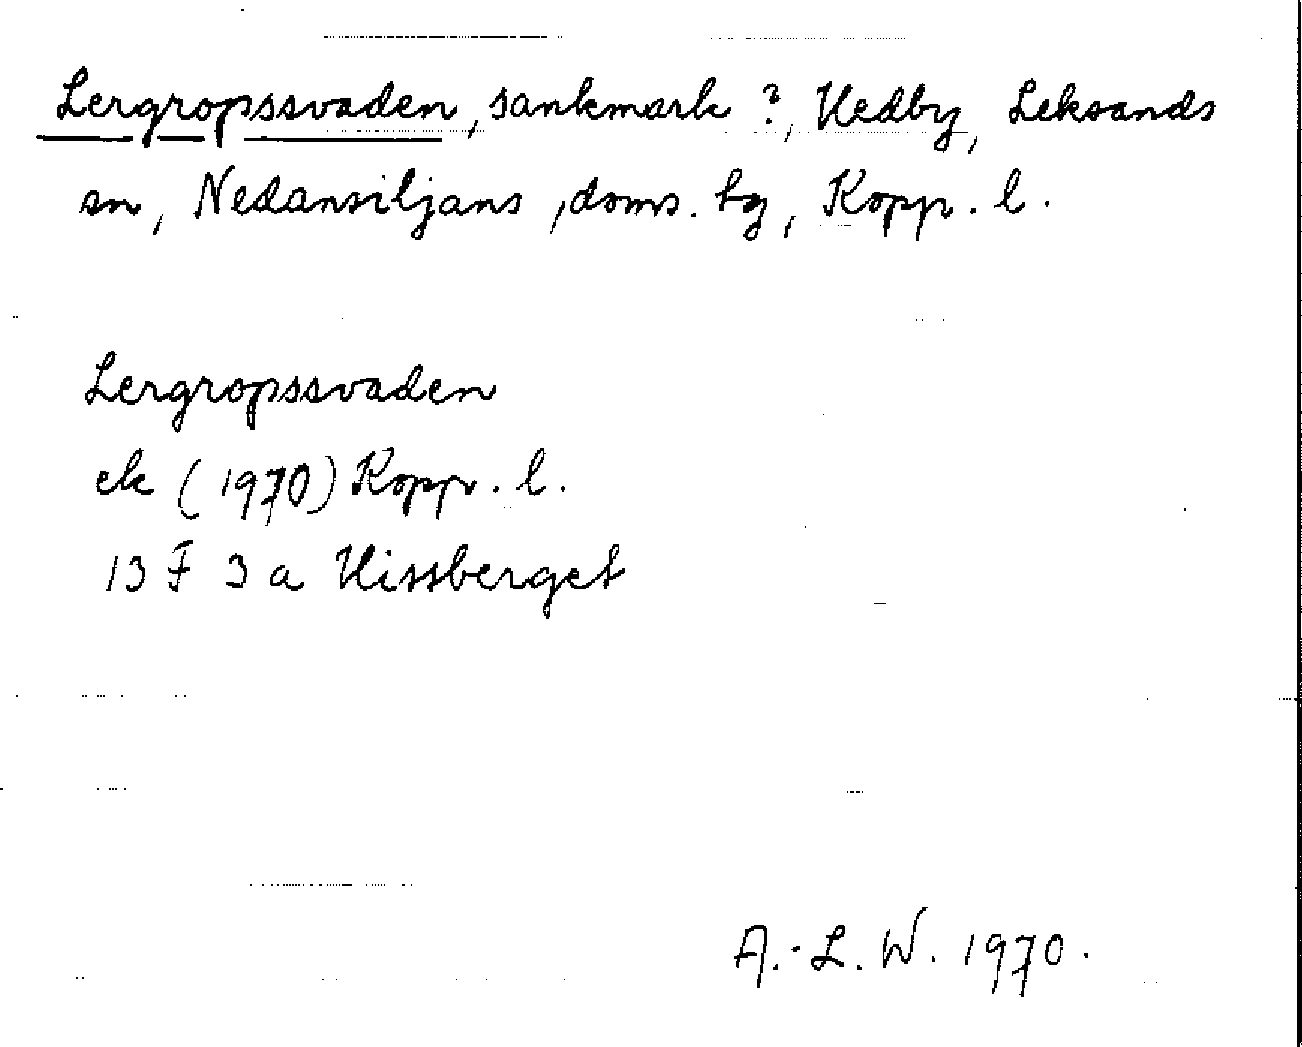 Lergropssvaden, sankmark ?, Hedby, Leksands
sn, Nedansiljans, doms. hg, Kopp. l.
Lergropssvaden
ek (1970) Kopp. l.
13 F 3 a Hissberget
A.-L. W. 1970.